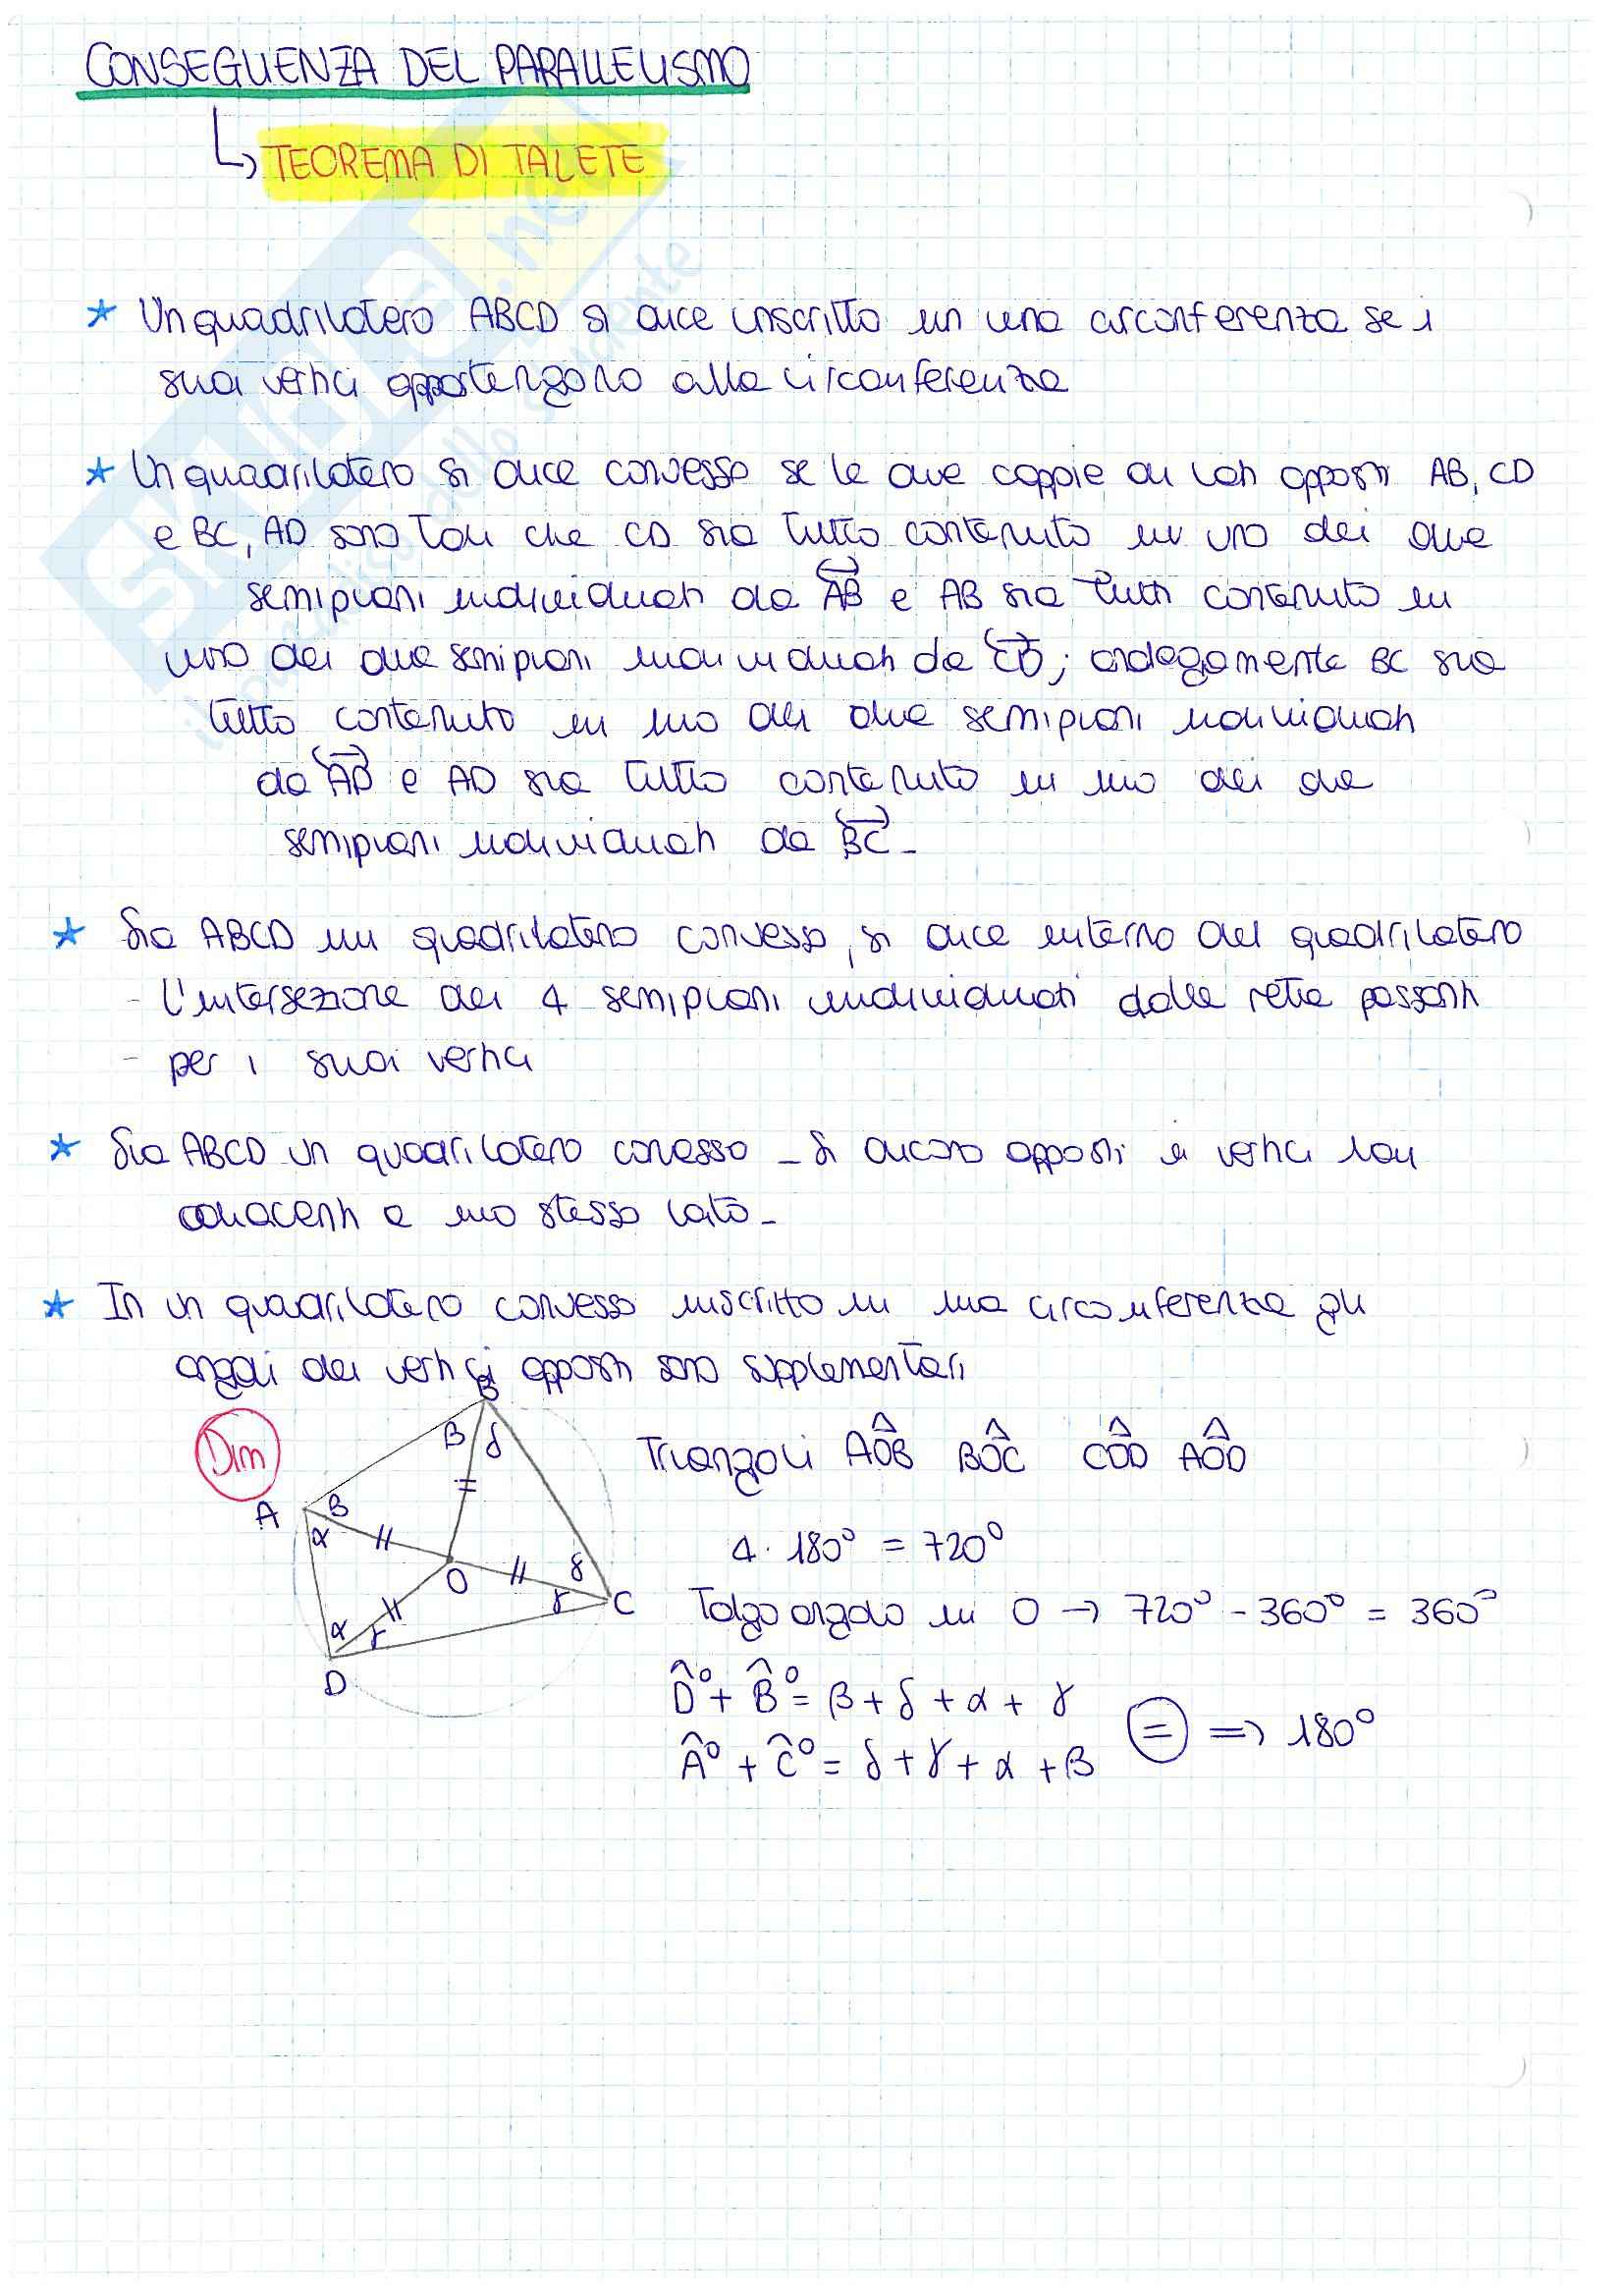 CONSEGUENZA DEL PARALLELISMO
↳ TEOREMA DI TALETE
* Un quadrilatero ABCD si dice inscritto in una circonferenza se i
suoi vertici appartengono alla circonferenza
* Un quadrilatero si dice convesso se le due coppie di lati opposti AB, CD
e BC, AD sono tali che CD sia tutto contenuto in uno dei due
semipiani individuati da AB e AB sia tutti contenuto in
uno dei due semipiani individuati da CD; analogamente BC sia
tutto contenuto in uno dei due semipiani individuati
da AD e AD sia tutto contenuto in uno dei due
semipiani individuati da BC -
* Sia ABCD un quadrilatero convesso, si dice interno del quadrilatero
- l'intersezione dei 4 semipiani individuati dalle rette passanti
- per i suoi vertici
* Sia ABCD un quadrilatero convesso - Si dicono opposti i vertici non
adiacenti a uno stesso lato -
* In un quadrilatero convesso inscritto in una circonferenza gli
angoli dei vertici opposti sono supplementari
Dim
B
β δ
A β
α
O
δ
γ C
α γ
D
Triangoli AÔB BÔC CÔD AÔD
4 · 180° = 720°
Tolgo angolo in O → 720° - 360° = 360°
D̂° + B̂° = β + δ + α + γ
Â° + Ĉ° = δ + γ + α + β
= => 180°